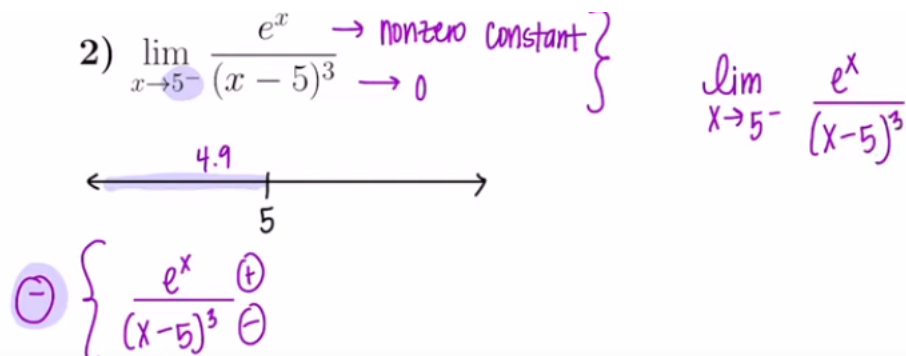 2) lim x→5⁻ e^x/(x − 5)³ → nonzero constant → 0 }
lim x→5⁻ e^x/(x-5)³
4.9
5
⊖ { e^x/(x-5)³ ⊕ ⊖